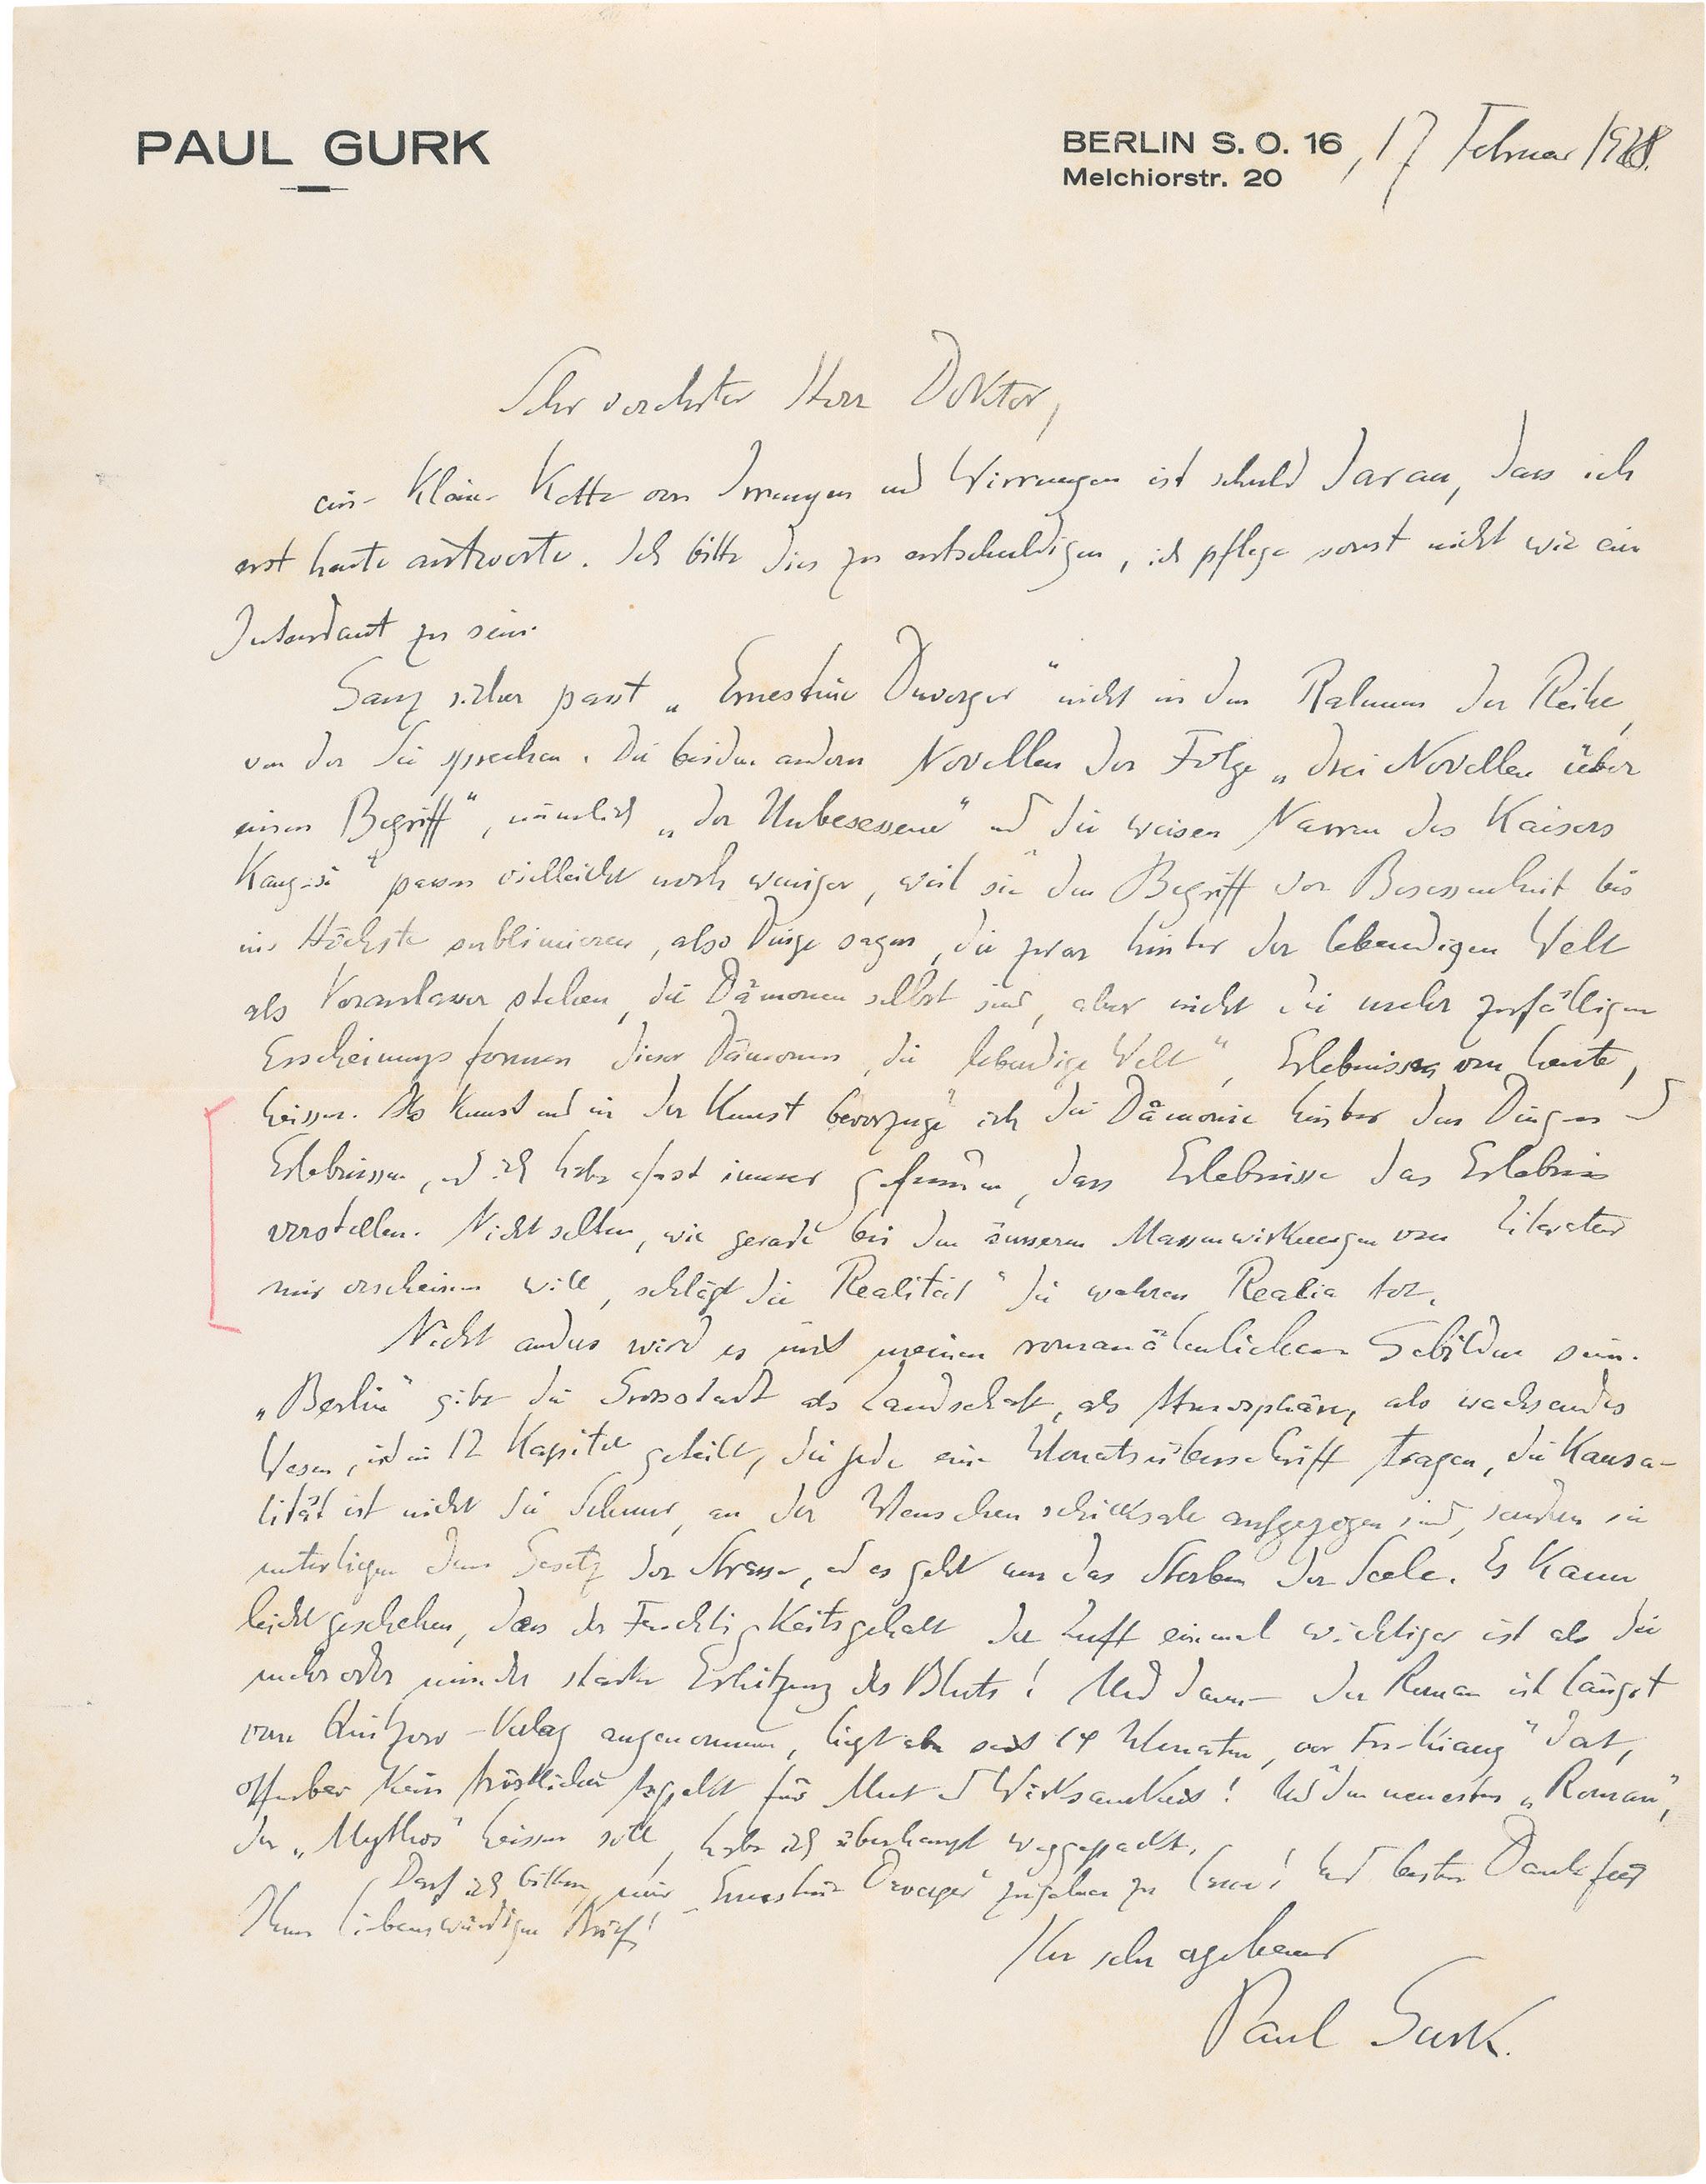 PAUL GURK
BERLIN S. O. 16, 17 Februar 1928.
Melchiorstr. 20
Sehr verehrter Herr Doktor,
eine kleine Kette von Irrungen und Wirrungen ist schuld daran, dass ich
erst heute antworte. Ich bitte dies zu entschuldigen, ich pflege sonst nicht wie ein
Intendant zu sein.
Ganz sicher passt „Ernestine Duverger“ nicht in den Rahmen der Reihe,
von der Sie sprechen. Die beiden andern Novellen der Folge „drei Novellen über
einen Begriff“, nämlich „der Unbesessene“ und die weisen Narren des Kaisers
passen vielleicht noch weniger, weil sie den Begriff der Besessenheit bis
ins Höchste sublimieren, also Dinge sagen, die zwar hinter der lebendigen Welt
als Veranlasser stehen, die Dämonen selbst sind, aber nicht die mehr zufälligen
Erscheinungsformen dieser Dämonen, die lebendige Welt“, Erlebnisse von heute,
heissen. Als Kunst und in der Kunst bevorzuge ich die Dämonie hinter den Dingen und
Erlebnissen, und ich habe fast immer gefunden, dass Erlebnisse das Erlebnis
verstellen. Nicht selten, wie gerade bei den äusseren Massenwirkungen von Literatur
mir erscheinen will, schlägt die Realität“ die wahren Realia tot.
Nicht anders wird es mit meinen romanähnlichen Gebilden sein.
„Berlin“ gibt die Grossstadt als Landschaft, als Atmosphäre, als wachsendes
Wesen, ist in 12 Kapitel geteilt, die jede eine Monatsüberschrift tragen, die Kausa-
lität ist nicht die Schnur, an der Menschenschicksale aufgezogen sind, sondern sie
unterliegen dem Gesetz der Strasse, und es geht um das Sterben der Seele. Es kann
leicht geschehen, dass der Feuchtigkeitsgehalt der Luft einmal wichtiger ist als die
mehr oder minder starke Erhitzung des Bluts! Und dann – der Roman ist längst
vom Quitzow-Verlag angenommen, liegt aber seit 14 Monaten, vor Tu-Kiang“ dort,
offenbar kein tröstlicher Aspekt für Mut und Wirksamkeit! Und den neuesten „Roman“,
der „Mythos“ heissen soll, habe ich überhaupt weggepackt.
Darf ich bitten, mir „Ernestine Duverger“ zugehen zu lassen! Und besten Dank für
Ihren liebenswürdigen Brief!
Ihr sehr ergebener
Paul Gurk.